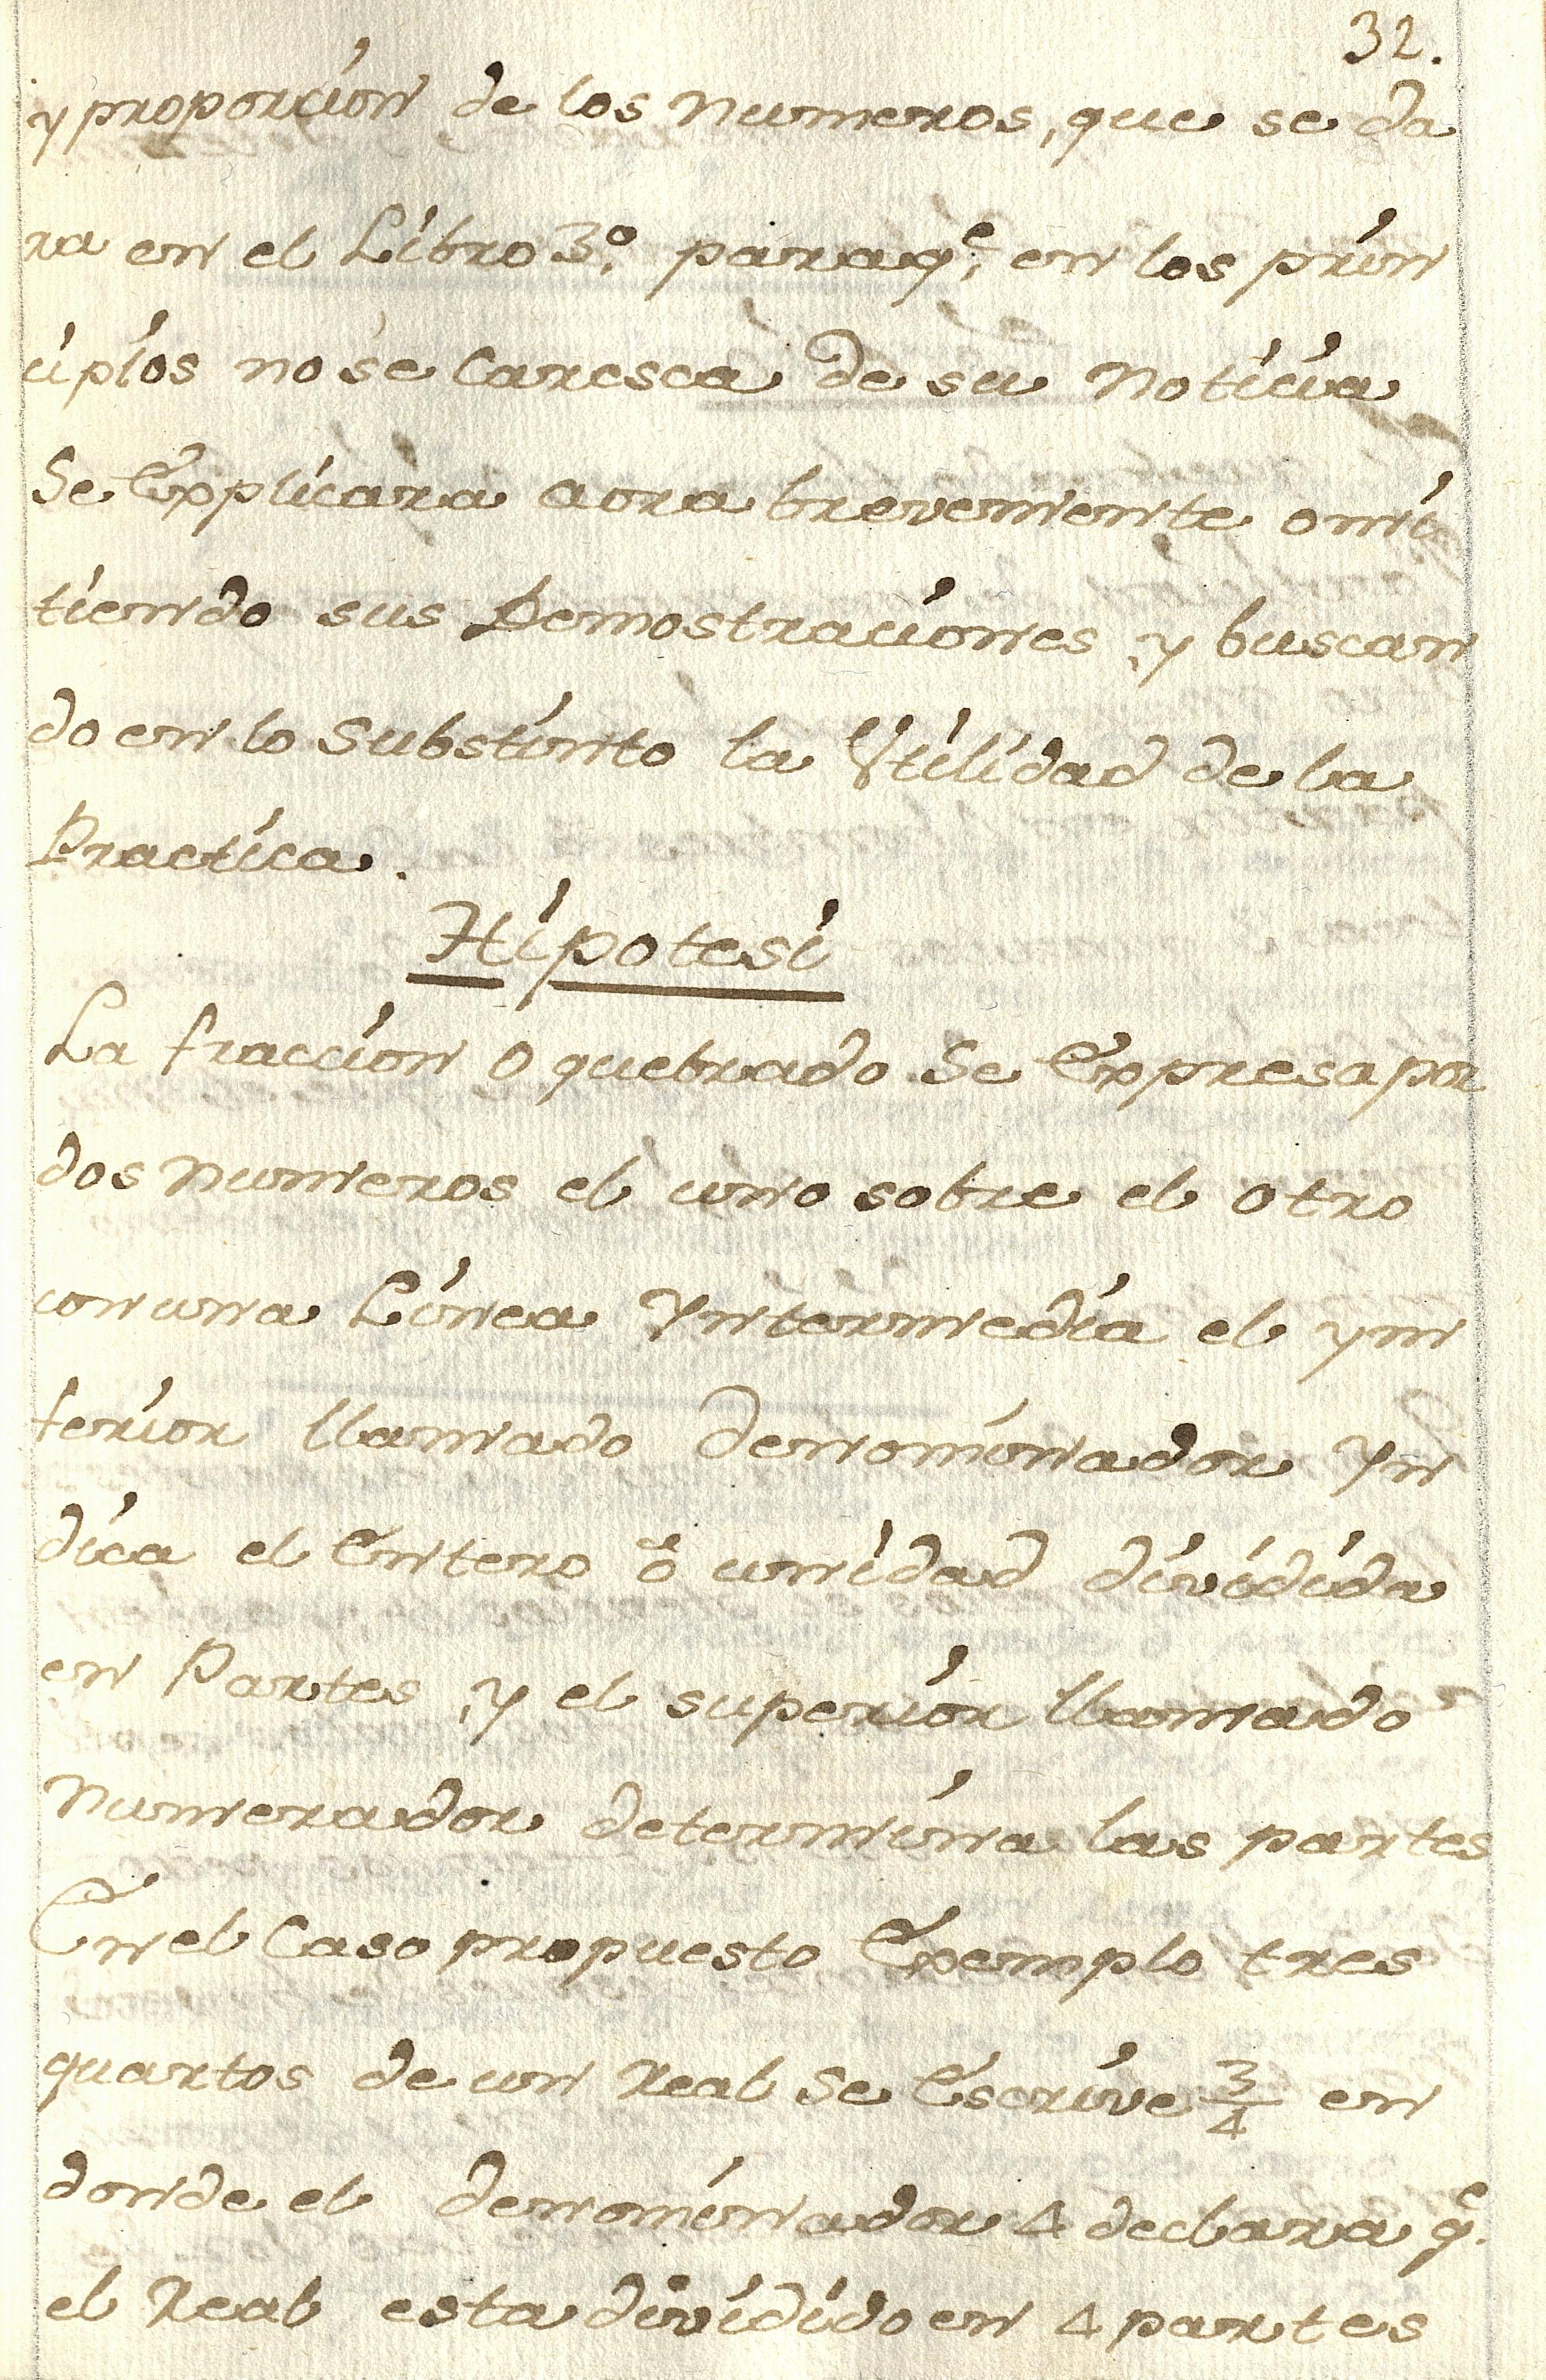 32.
y proporcion de los numeros, que se da
ra en el Libro 3º. para q^e. en los prin
cipios no se Caresca de su noticia
Se Explicara aora brevemente omi
tiendo sus Demostraciones, y buscan
do en lo Substinto la Vtilidad de la
Practica.
Hipotesi
La fraccion O quebrado Se Expresa por
dos numeros el uno sobre el otro
con una Linea Yntermedia el yn
ferior llamado denominador Yn
dica el Entero ó unidad dividida
en Partes, y el superior llamado
Numerador determina las partes
En el Caso propuesto Exemplo tres
quartos de un Real Se Escrive 3/4 en
donde el denominador 4 declara q^e.
el Real esta dividido en 4 partes